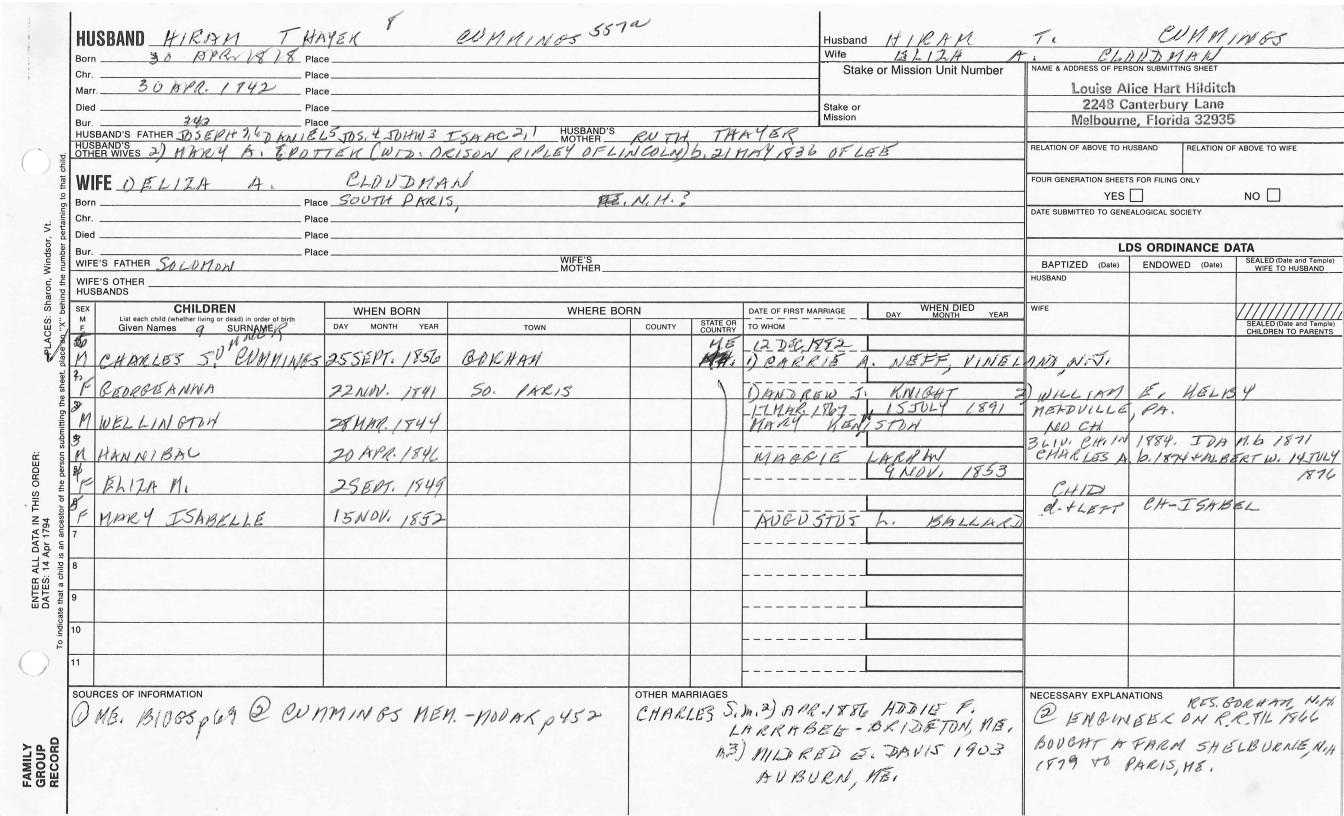 HUSBAND HIRAM THAYER 8 CUMMINGS 557a
Born 30 APR 1818 Place
Chr. Place
Marr. 30 APR. 1842 Place
Died Place
Bur. Place
342
HUSBAND'S FATHER JOSEPH 7,6 DANIEL 5 JOS. 4 JOHN 3 ISAAC 2,1 HUSBAND'S MOTHER RUTH THAYER
HUSBAND'S OTHER WIVES 2) MARY A. POTTER (WID. ORISON RIPLEY OF LINCOLN) b. 21 MAY 1836 OF LEE
Husband HIRAM T. CUMMINGS
Wife ELIZA A. CLOUDMAN
Stake or Mission Unit Number
Stake or Mission
NAME & ADDRESS OF PERSON SUBMITTING SHEET
Louise Alice Hart Hilditch
2248 Canterbury Lane
Melbourne, Florida 32935
RELATION OF ABOVE TO HUSBAND RELATION OF ABOVE TO WIFE
FOUR GENERATION SHEETS FOR FILING ONLY
YES NO
DATE SUBMITTED TO GENEALOGICAL SOCIETY
WIFE ELIZA A. CLOUDMAN
Born Place SOUTH PARIS, N.H.?
Chr. Place
Died Place
Bur. Place
WIFE'S FATHER SOLOMON WIFE'S MOTHER
WIFE'S OTHER HUSBANDS
LDS ORDINANCE DATA
BAPTIZED (Date) ENDOWED (Date) SEALED (Date and Temple) WIFE TO HUSBAND
HUSBAND
WIFE
SEALED (Date and Temple) CHILDREN TO PARENTS
SEX M F
CHILDREN
List each child (whether living or dead) in order of birth
Given Names 9 SURNAME
WHEN BORN
DAY MONTH YEAR
WHERE BORN
TOWN COUNTY STATE OR COUNTRY
DATE OF FIRST MARRIAGE
TO WHOM
WHEN DIED
DAY MONTH YEAR
M CHARLES SUMNER CUMMINGS 25 SEPT. 1856 GORHAM ME 12 DEC, 1882
1) CARRIE A. NEFF, VINELAND, N.J.
F GEORGEANNA 22 NOV. 1841 SO. PARIS 1) ANDREW J. KNIGHT 2) WILLIAM E.
M WELLINGTON 28 MAR. 1844 17 MAR. 1867 15 JULY 1891 MEADVILLE, PA.
MARY KENISTON NO CH
M HANNIBAL 20 APR. 1846 MAGGIE 3 LIV. CH IN 1884. IDA M. b 1871
CHARLES A. b. 1874 + ALBERT W. 14 JULY 1876
F ELIZA M. 2 SEPT. 1849 9 NOV. 1853 CHID
F MARY ISABELLE 15 NOV. 1852 AUGUSTUS L. BALLARD d. + LEFT CH-ISABEL
7
8
9
10
11
SOURCES OF INFORMATION
① ME. BIOGS p69 ② CUMMINGS MEM. - p452
OTHER MARRIAGES
CHARLES S. m. 2) APR. 1886 ADDIE P.
LARRABEE - BRIDGTON, ME.
3) MILDRED E. DAVIS 1903
AUBURN, ME.
NECESSARY EXPLANATIONS RES. GORHAM, N.H
② ENGINEER ON R.R. TIL 1866
BOUGHT A FARM SHELBURNE, N.H
1879 TO PARIS, ME.
FAMILY GROUP RECORD
ENTER ALL DATA IN THIS ORDER:
DATES: 14 Apr 1794
PLACES: Sharon, Windsor, Vt.
To indicate that a child is an ancestor of the person submitting the sheet, place an "X" behind the number pertaining to that child.